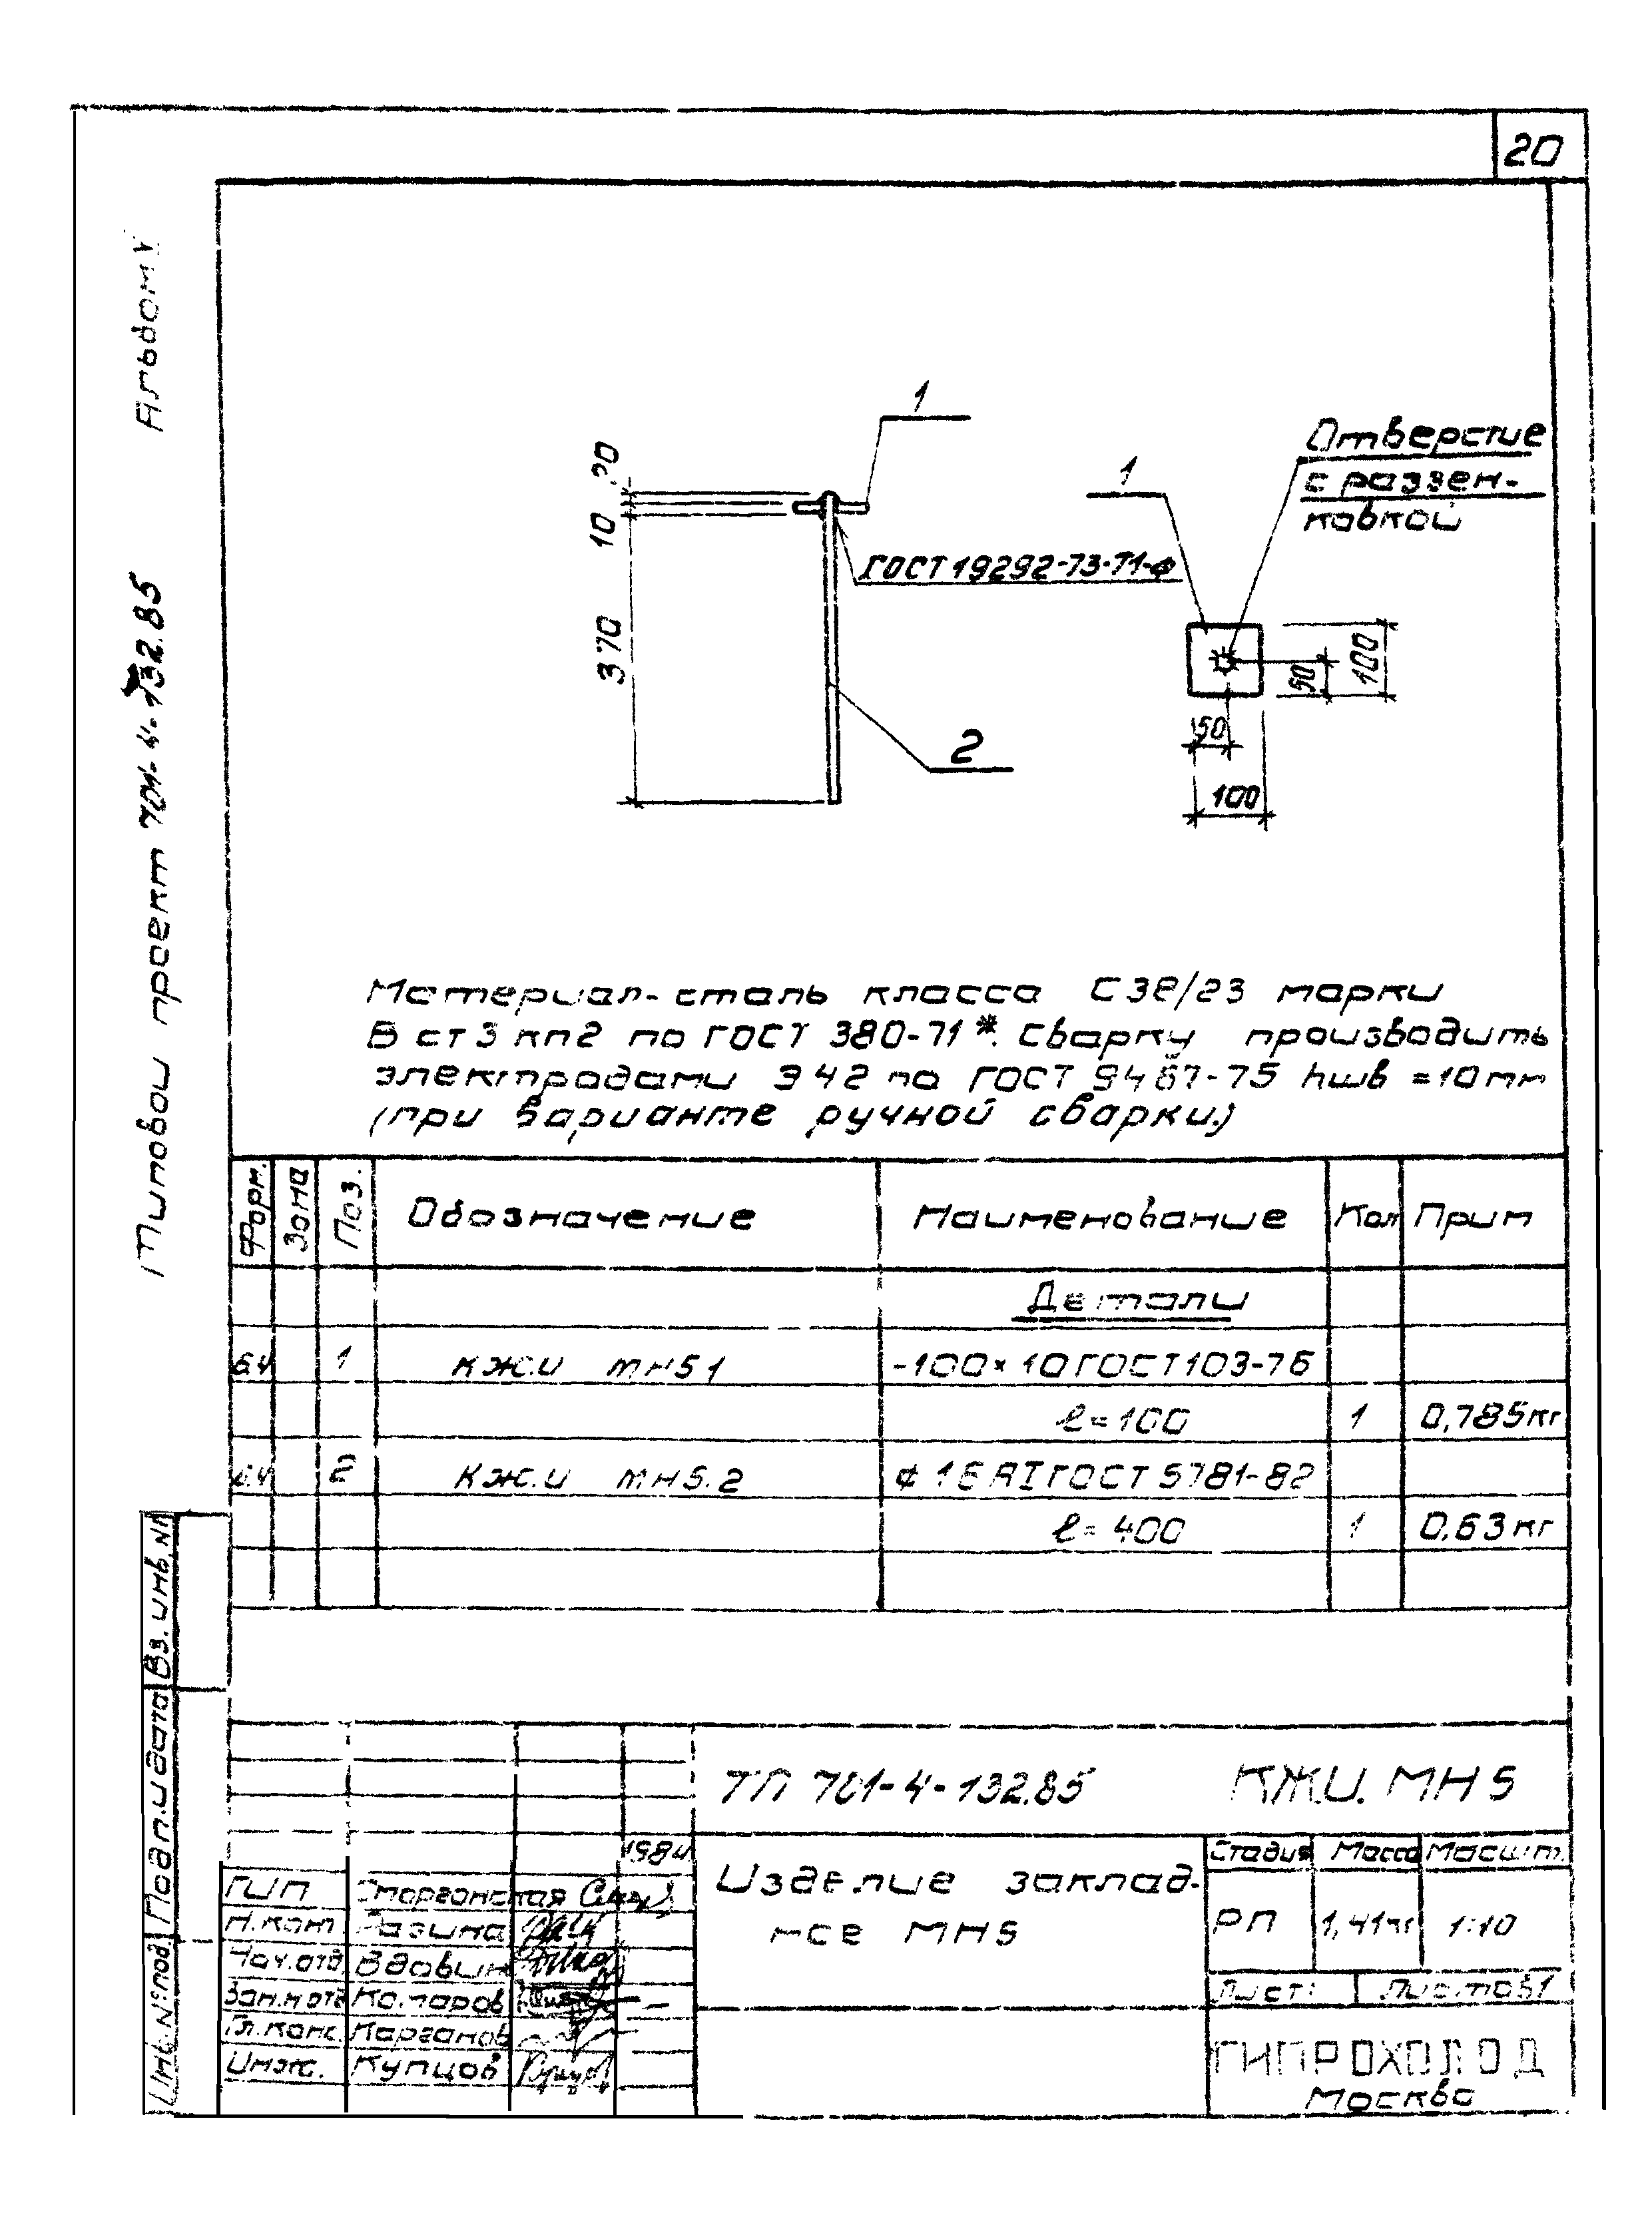 20
Альбом V
Типовой проект 701-4-132.85
1
20
10
370
ГОСТ 19292-73-Т1-ф
2
1
Отверстие
с раззен-
ковкой
50
100
50
100
Материал-сталь класса С38/23 марки
В ст 3 кп2 по ГОСТ 380-71*. Сварку производить
электродами Э42 по ГОСТ 9467-75 hшв =10мм
(при варианте ручной сварки.)
Форм. Зона Поз. Обозначение Наименование Кол Прим
Детали
Б.ч 1 КЖ.И МН5.1 -100×10 ГОСТ 103-76
ℓ=100 1 0,785кг
Б.ч 2 КЖ.И МН5.2 ϕ 16 АI ГОСТ 5781-82
ℓ=400 1 0,63кг
ТП 701-4-132.85 КЖ.И. МН5
1984
Изделие заклад-
ное МН5
Стадия Масса Масшт.
РП 1,41кг 1:10
Лист 1 Листов 1
ГИП
Н.кот Разина
Нач.отд. Вдовин
Зам.н.отд Комаров
Гл.конс. Карганов
Инж. Купцов
ГИПРОХОЛОД
Москва
Вз. инв. №
Подп. и дата
Инв. № под.